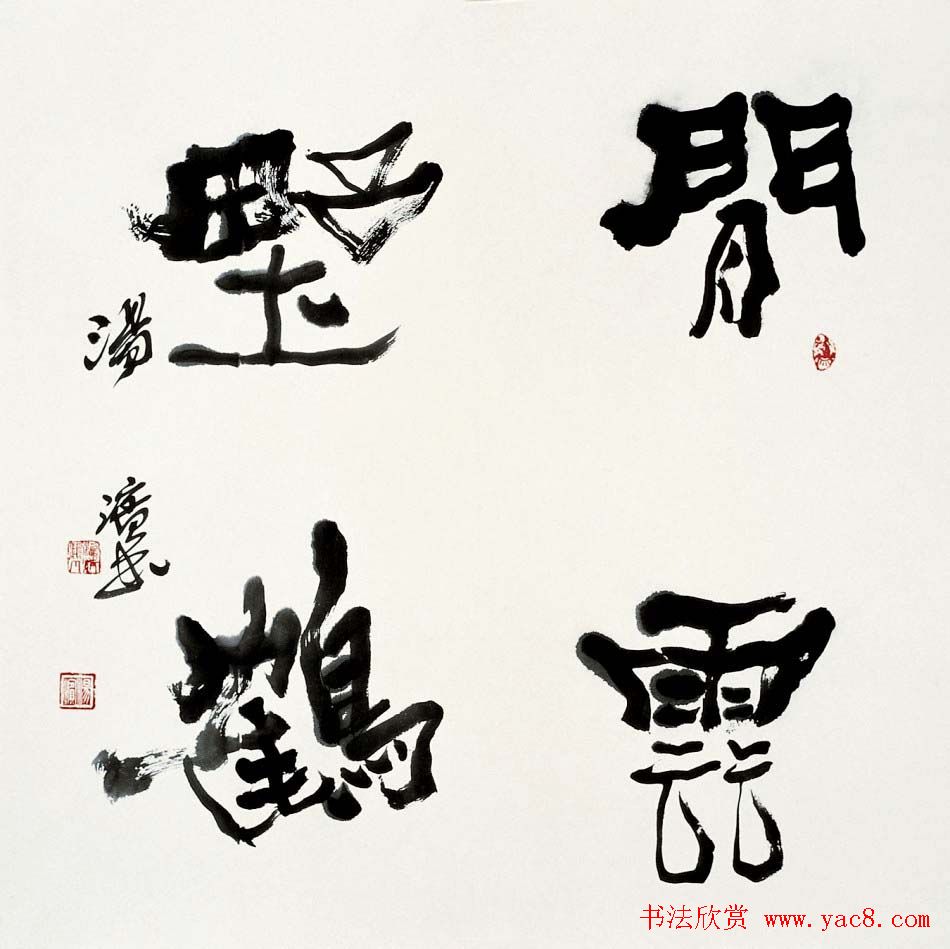 閒雲
野鶴
湯
书法欣赏 www.yac8.com